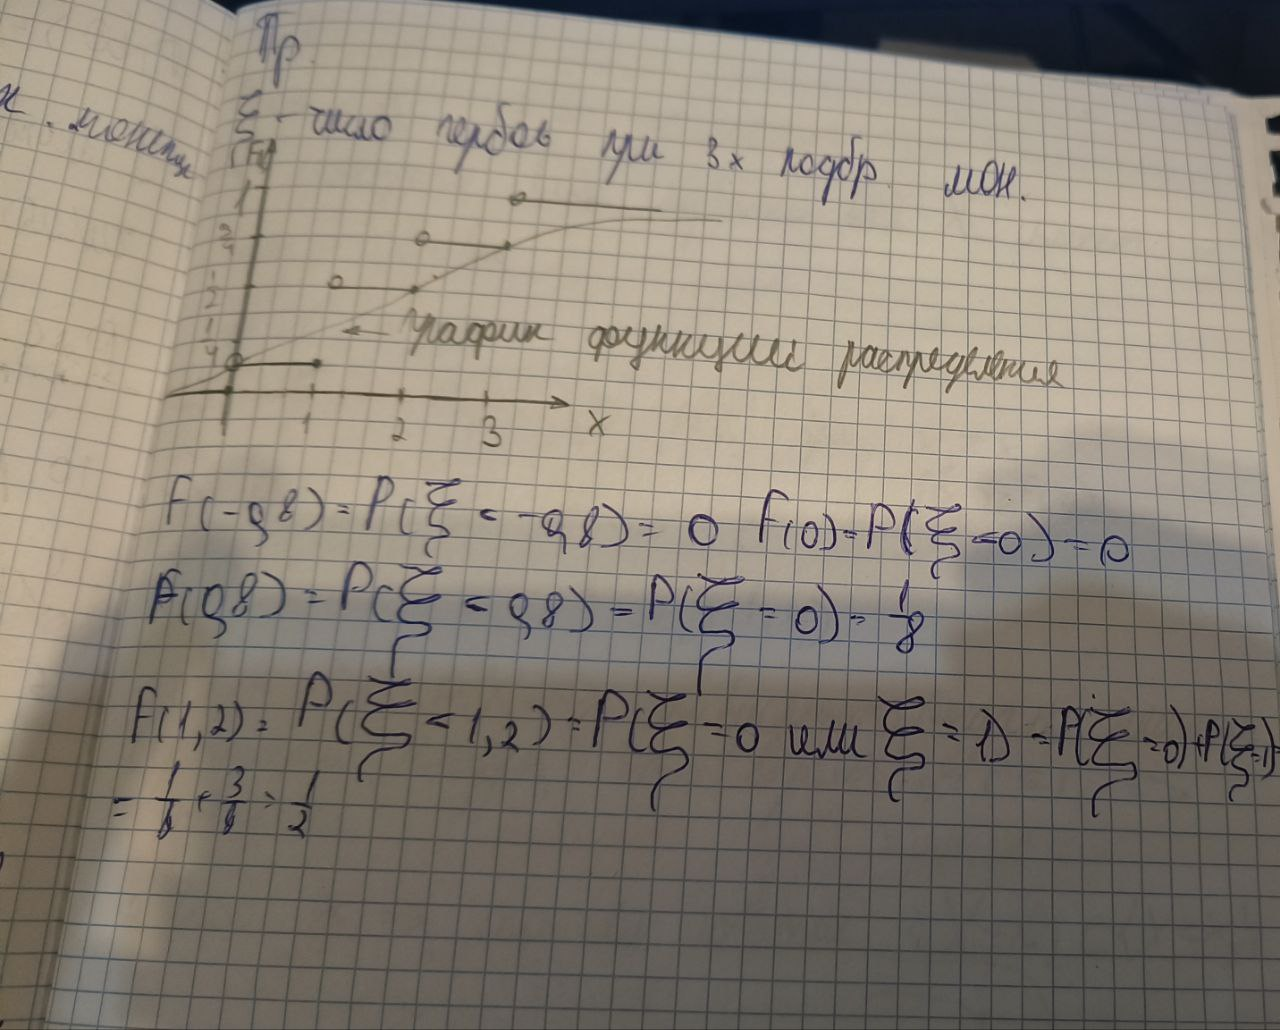 Пр.
ξ - число гербов при 3х подбр. мон.
монеты
F(x)
1
3/4
1/2
1/4
← График функции распределения
1 2 3 x
F(-0,8) = P(ξ < -0,8) = 0 F(0) = P(ξ < 0) = 0
F(0,8) = P(ξ < 0,8) = P(ξ = 0) = 1/8
F(1,2) = P(ξ < 1,2) = P(ξ = 0 или ξ = 1) = P(ξ = 0) + P(ξ = 1)
= 1/8 + 3/8 = 1/2